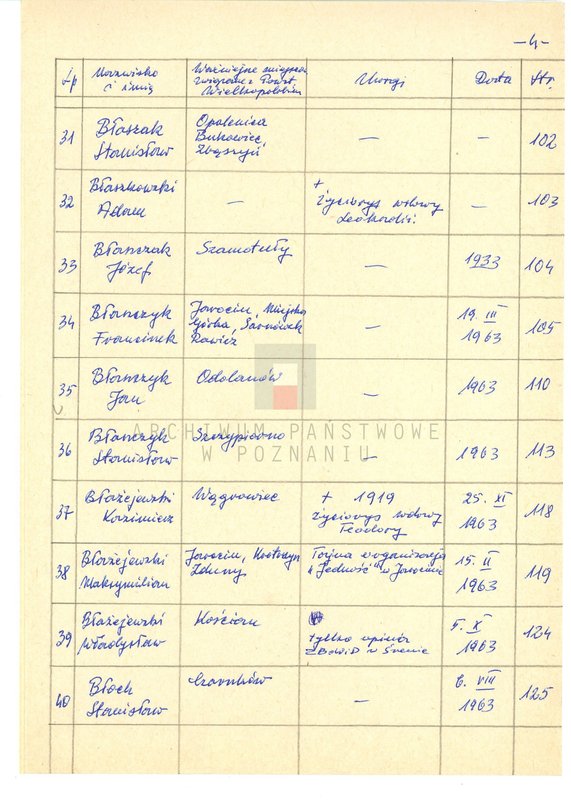 -4-
Lp Nazwisko i imię Ważniejsze miejsca związane z Powst. Wielkopolskim Uwagi Data Str.
31 Błaszak Stanisław Opalenica Bukowiec, Zbąszyń — — 102
32 Błaszkowski Adam — + Życiorys wdowy Leokadii. — 103
33 Błaszczak Józef Szamotuły — 1933 104
34 Błaszczyk Franciszek Jarocin, Miejska Górka, Sarnówek Rawicz — 19. III 1963 105
35 Błaszczyk Jan Odolanów — 1963 110
36 Błaszczyk Stanisław Szczypiorno — 1963 113
37 Błażejewski Kazimierz Wągrowiec + 1919 Życiorys wdowy Teodory 25. XI 1963 118
38 Błażejewski Maksymilian Jarocin, Zduny Tajna organizacja "Jedność" w Jarocinie 15. II 1963 119
39 Błażejewski Władysław Kościan tylko opinia ZBoWiD w Śremie 5. X 1963 124
40 Błoch Stanisław Czarnków — 6. VIII 1963 125
ARCHIWUM PAŃSTWOWE
W POZNANIU